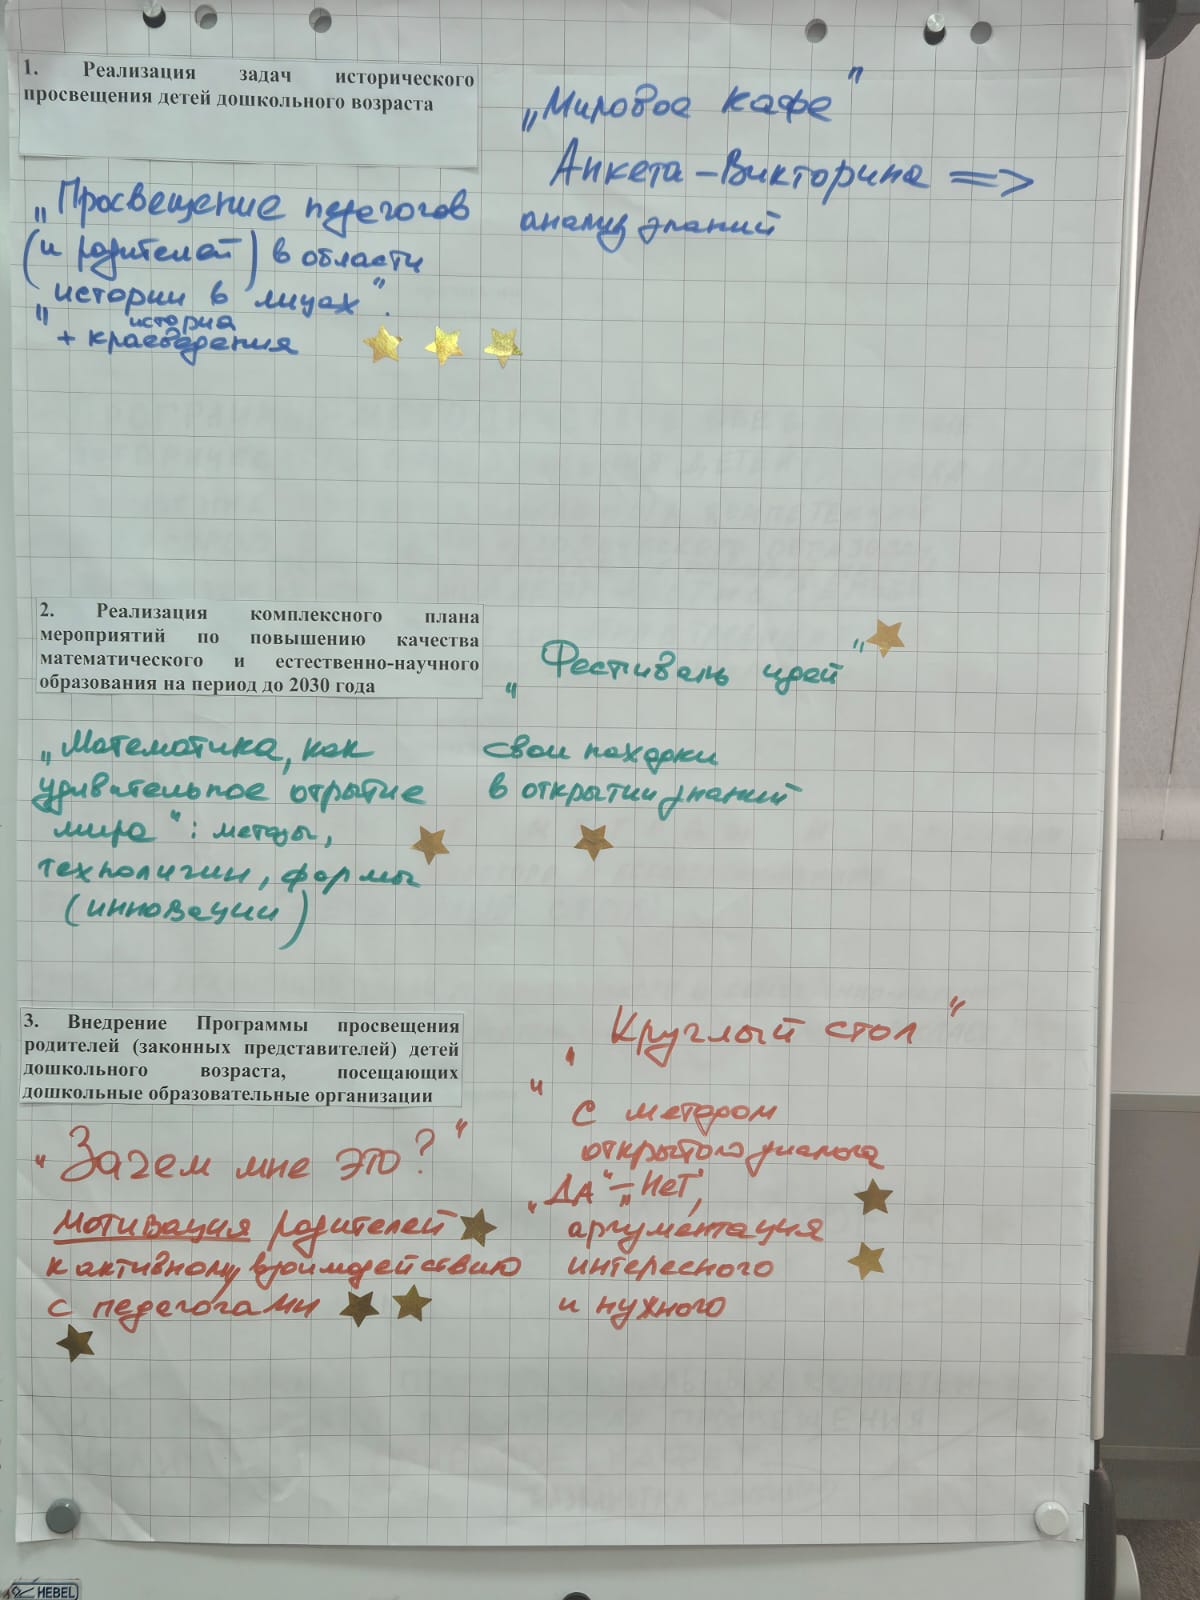 1. Реализация задач исторического
просвещения детей дошкольного возраста
„Мировое кафе"
Анкета-Викторина =>
анализ знаний
„Просвещение педагогов
(и родителей) в области
„истории в лицах".
история
+ краеведения
2. Реализация комплексного плана
мероприятий по повышению качества
математического и естественно-научного
образования на период до 2030 года
„Фестиваль идей"
„Математика, как
удивительное отрытие
мира": методы,
технолигии, формы
(инновации)
свои находки
в открытии знаний
3. Внедрение Программы просвещения
родителей (законных представителей) детей
дошкольного возраста, посещающих
дошкольные образовательные организации
„Круглый стол"
„Зачем мне это?"
мотивация родителей
к активному взаимодействию
с педагогами
с методом
открытого диалога
„ДА"-„НеТ",
аргументация
интересного
и нужного
HEBEL